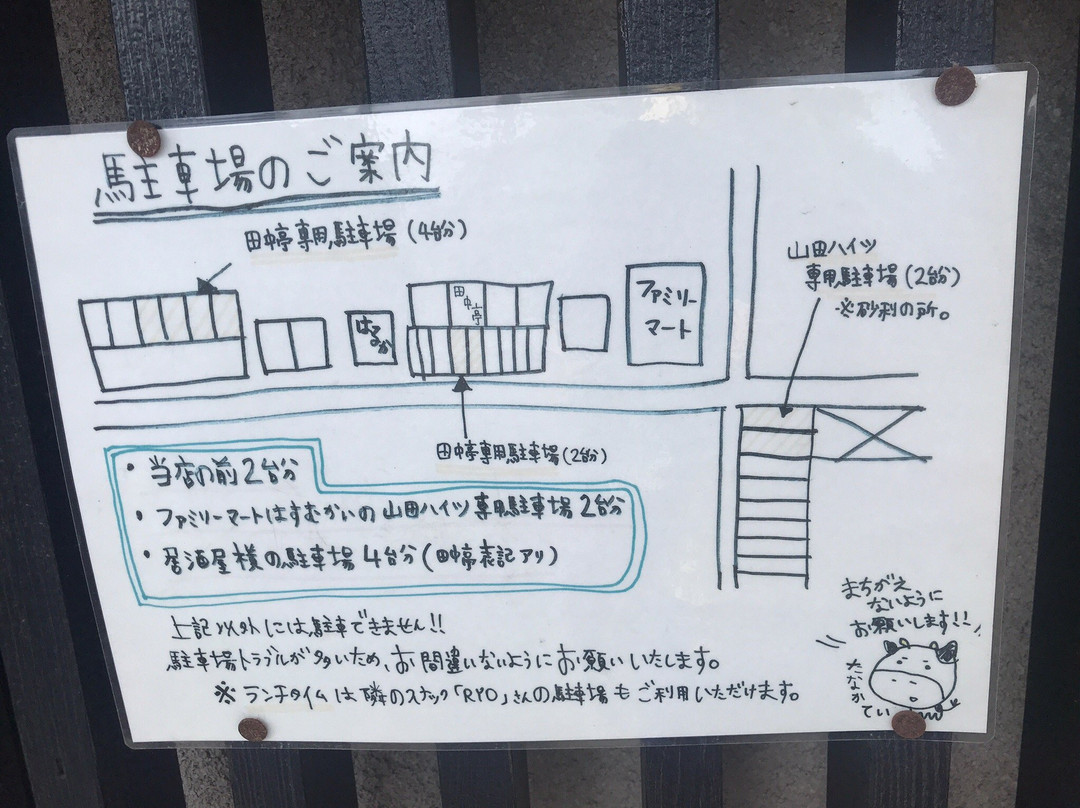 駐車場のご案内
田中亭専用駐車場(4台分)
山田ハイツ
専用駐車場(2台分)
※砂利の所。
田中亭
はるか
ファミリー
マート
田中亭専用駐車場(2台分)
・当店の前2台分
・ファミリーマートはすむかいの山田ハイツ専用駐車場2台分
・居酒屋様の駐車場4台分(田中亭表記アリ)
上記以外には駐車できません!!
駐車場トラブルが多いため、お間違いないようにお願いいたします。
※ランチタイムは隣のスナック「RYO」さんの駐車場もご利用いただけます。
まちがえ
ないように
お願いします!!
たなか
てい